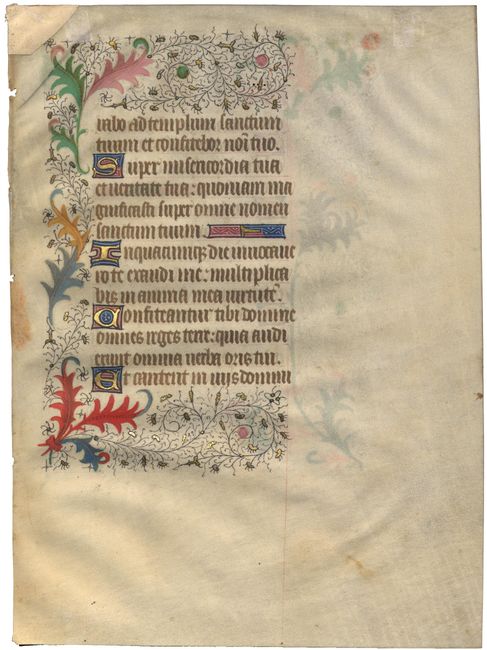 rabo ad templum sanctum
tuum et confitebor noi͂ tuo.
Super misericordia tua
et ueritate tua: quoniam ma
gnificasti super omne nomen
sanctum tuum.
In quacumq͗ die inuocaue
ro te exaudi me: multiplica
bis in anima mea uirtutē.
Confiteantur tibi domine
omnes reges terre: quia audi
erunt omnia uerba oris tui.
Et cantent in uiis domini